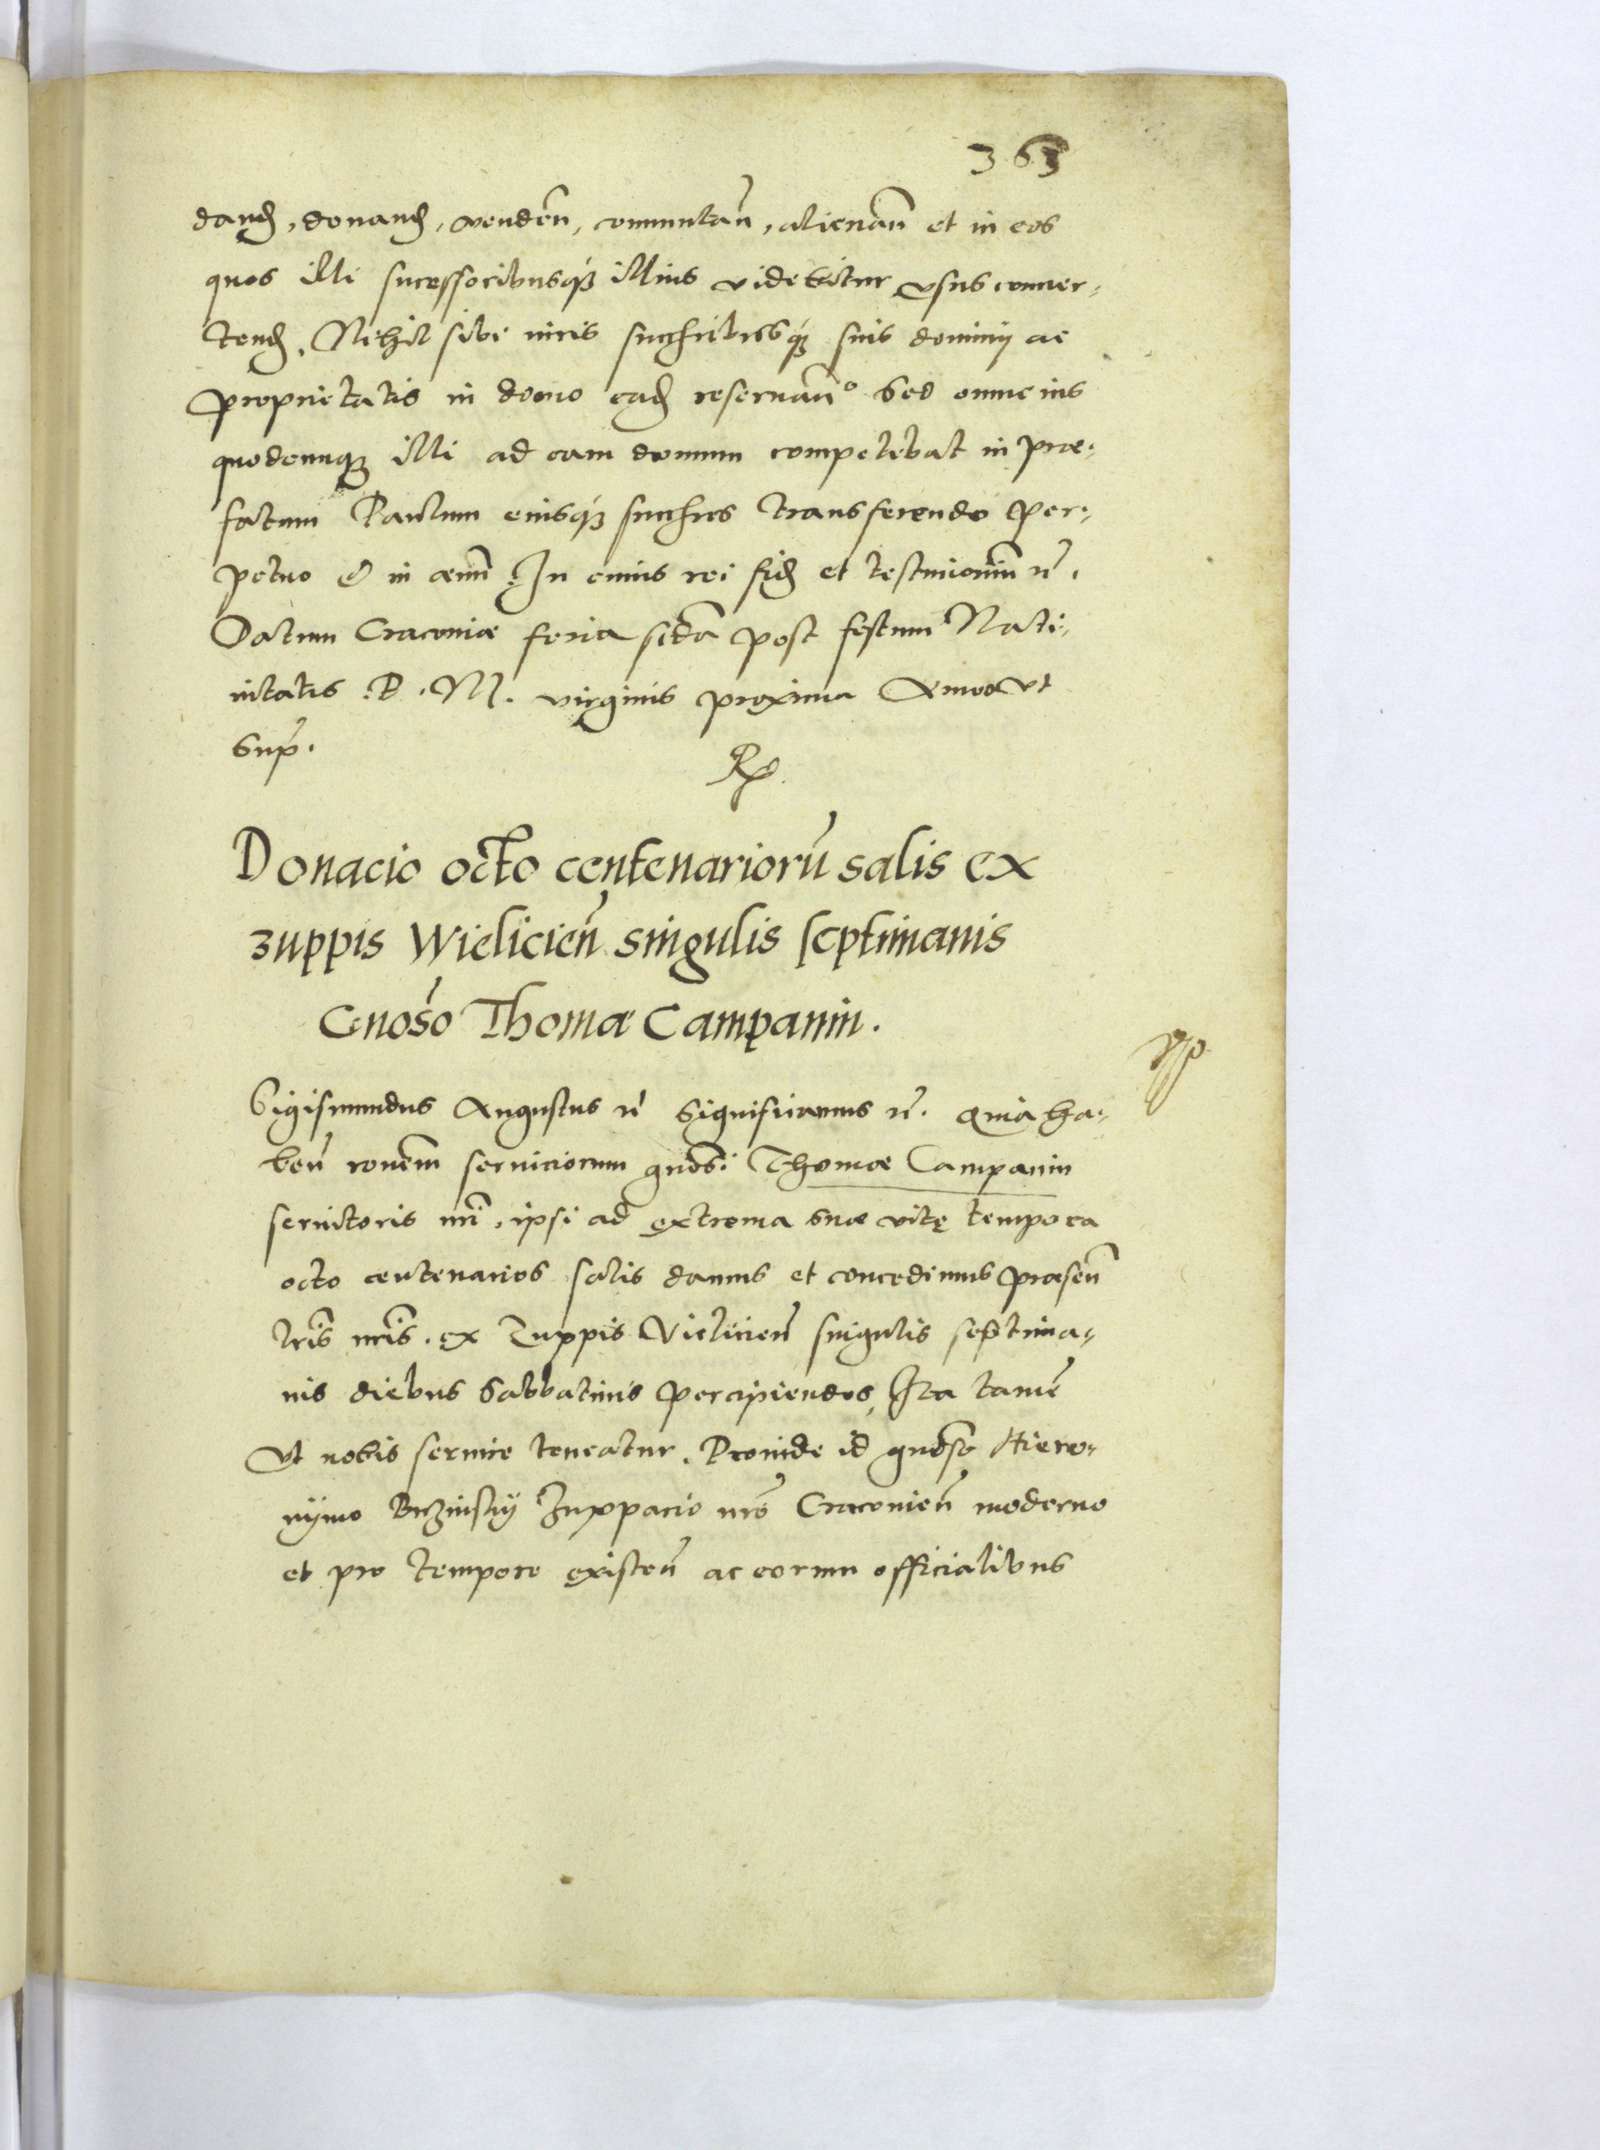 363
dand, donand, venden, commutan, alienan et in eos
quos illi successoribusq illius videbitur usus conver-
tend, Nihil sibi iuris succribusq suis dominij ac
proprietatis in domo ead reservan° Sed omne ius
quodcunq illi ad eam domum competebat in præ-
fatum Paulum eiusq succres transferendo per-
petuo & in æuum. In cuius rei fid et testimonium etc.
Datum Cracoviæ feria scda post festum Nati-
vitatis B. M. virginis proxima Anno ut
Sup.
Donacio octo centenarioru salis ex
zuppis Wielicien singulis septimanis
Gnoso Thomæ Campanin.
Sigismundus Augustus etc Significamus etc. Quia ha-
ben ronem serviciorum gnosi Thomæ Campanin
servitoris nri, ipsi ad extrema suæ vitę tempora
octo centenarios salis damus et concedimus præsen
lris nris. ex Zuppis Vielicien singulis septima-
nis diebus Sabbatinis percipiendos, Ita tame
Ut nobis servire teneatur. Proinde id gnoso Hiero-
nymo Buzinskij Zuppario nro Cracovien moderno
et pro tempore existen ac eorum officialibus